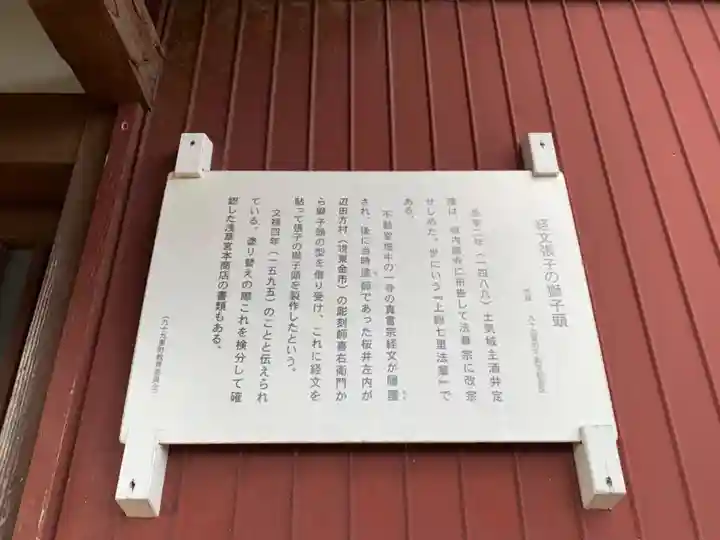 経文張子の獅子頭
長享二年(一四八八)土気城主酒井定
隆は、領内諸寺に布告して法華宗に改宗
せしめた。世にいう『上総七里法華』で
ある。
不動堂畑中の一寺の真言宗経文が
され、後に当時塗師であった桜井左内が
辺田方村(現東金市)の彫刻師喜右衛門か
ら獅子頭の型を借り受け、これに経文を
貼って張子の獅子頭を製作したという。
文禄四年(一五九五)のことと伝えられ
ている。塗り替えの際これを検分して確
認した浅草宮本商店の書類もある。
(九十九里町教育委員会)